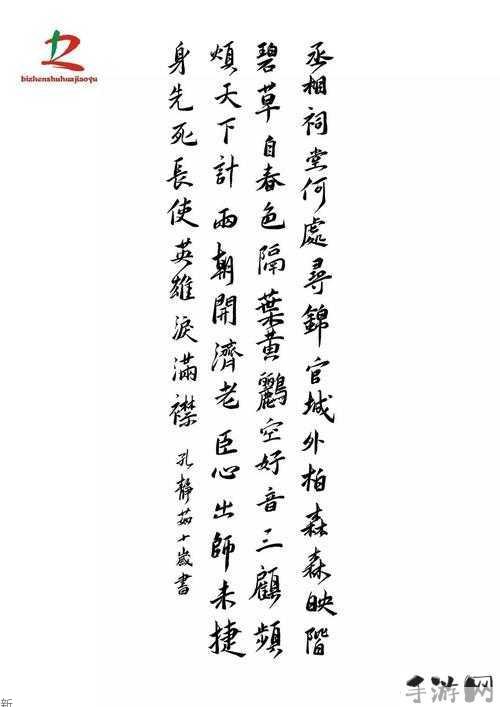 bizhenshuhuajiaoyu
丞相祠堂何處尋錦官城外柏森森映階
碧草自春色隔葉黃鸝空好音三顧頻
煩天下計兩朝開濟老臣心出師未捷
身先死長使英雄淚滿襟 孔靜茹十歲書
新
手游网